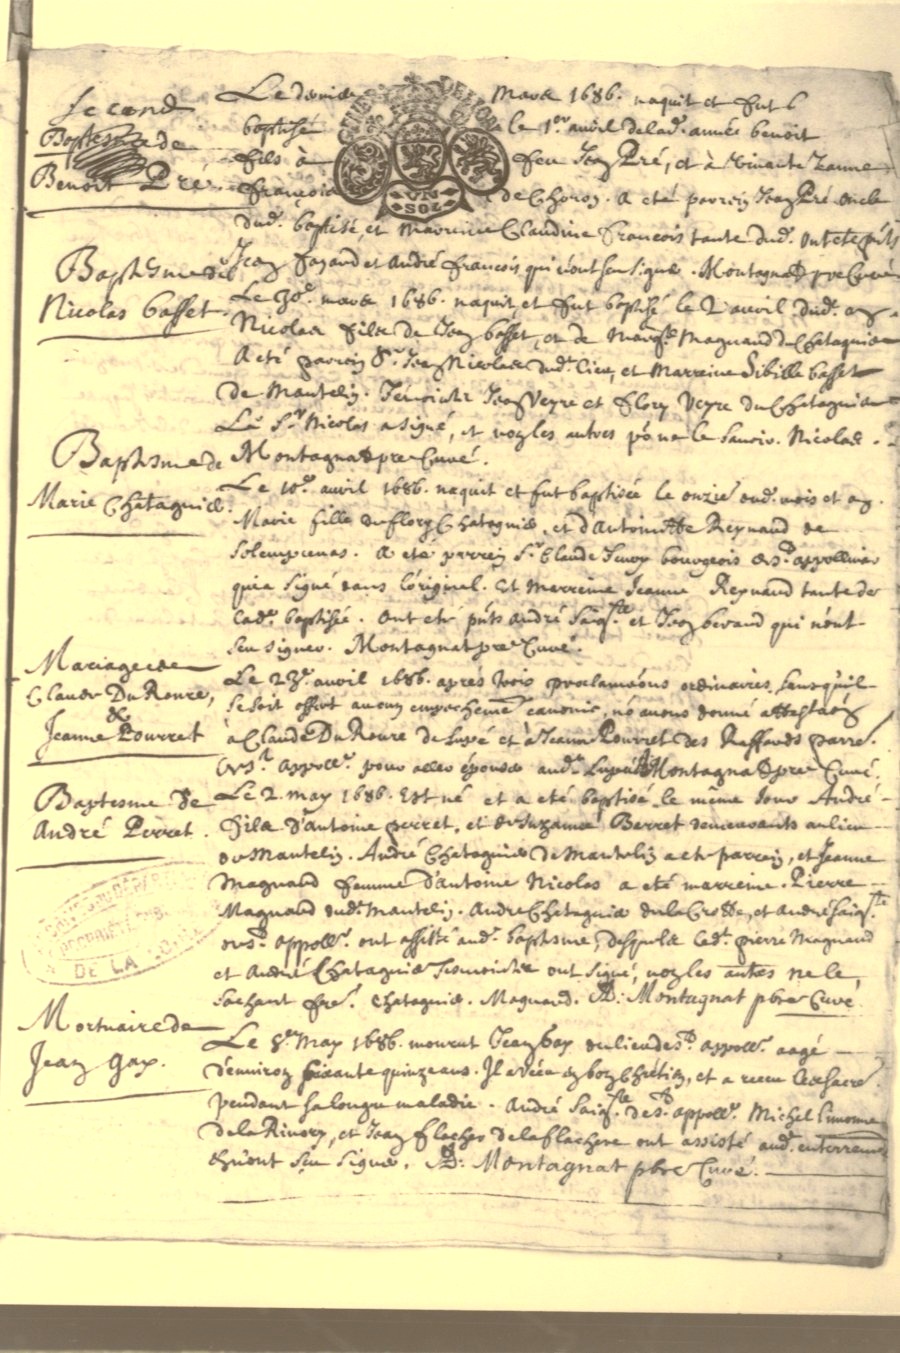 Second
Baptesme de
Benoit Pré.
Le dernier mars 1686. naquit et fut
baptisé le 1er avril de lad. année benoit
fils à feu Jean Pré, et à vivante Janne
François de Choron. A eté parrein Jean Pré oncle
dud. baptisé, et marreine Claudine François tante dud. Ont eté pnts
Jean fayard et André François qui n'ont sceu signer. Montagnat pre Curé
Baptesme de
Nicolas basset.
Le 30e. mars 1686. naquit, et fut baptisé le 2 avril dud. an
Nicolas fils de Jean basset, et de Marg.te Magnand du Chatagnier
A eté parrein Sr. Jean Nicolas dud. lieu, et Marreine Sibille basset
de Mantelin. Témoins Jean Veyre et flory Veyre du Chatagnier
Le Sr. Nicolas a signé, et non les autres po ne le savoir. Nicolas.
Montagnat pre Curé.
Baptesme de
Marie Chatagnier.
Le 10e. avril 1686. naquit et fut baptisée le onzie dud. mois et an.
Marie fille de flory Chatagnier, et d'Antoinette Reynaud de
A eté parrein Sr. Claude bourgeois de St. appollinar
qui a signé dans l'original. Et Marreine Jeanne Reynaud tante de
lad. baptisée. Ont eté pnts André et Jean beraud qui n'ont
sceu signer. Montagnat pre Curé.
Mariage de
Claude Du Roure,
&
Jeanne Pourret
Le 23e. avril 1686. aprés trois proclamaons ordinaires, sans qu'il
se soit offert aucun empecheme canoniq, nõ avons donné attestaõn
à Claude Du Roure de Lupé et à Jeanne Pourret des Raffards parre.
de St. Appollr. pour aller épouser aud. Lupé. Montagnat pre Curé.
Baptesme de
André Perret.
Le 2. may 1686. Est né et a eté baptisé le même jour André
fils d'antoine perret, et de Suzanne Barret demeurants au lieu
de Mantelin. André Chatagnier de Mantelin a eté parrein, et Jeanne
Magnand femme d'antoine Nicolas a eté marreine. Pierre
Magnand dud. Mantelin. André Chatagnier de la Crotte, et André
de St. appollr. ont assisté aud. baptesme, desquels led. pierre Magnand
et André Chatagnier Tesmoins ont signé, non les autres ne le
sachant fre. Chatagnier. Magnand. A: Montagnat pbre Curé
Mortuaire de
Jean Gay.
Le 8e May 1686. mourut Jean Gay du lieu de St. appollr. aagé
d'environ soixante quinze ans. Il a vécu en bon Chrétien, et a receu les sacre.
pendant sa longue maladie. André de St. appollr. Michel
de la Rivory, et Jean flacher de la flachere ont assisté aud. enterrement
& n'ont sceu signer. A: Montagnat pbre Curé.
UN
SOL
DE LA